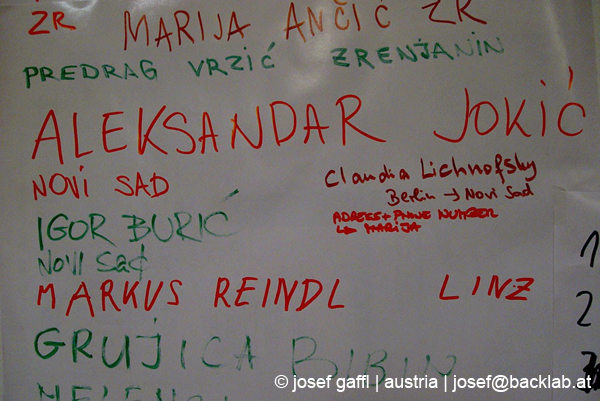 ZR MARIJA ANČIĆ ZR
PREDRAG VRZIĆ ZRENJANIN
ALEKSANDAR JOKIĆ
NOVI SAD
Claudia Lichnofsky
Berlin → Novi Sad
ADRESS + PHONE NUMBER
↳ MARIJA
IGOR BURIĆ
NOVI Sad
MARKUS REINDL LINZ
GRUJICA
1
2
© josef gaffl | austria | josef@backlab.at